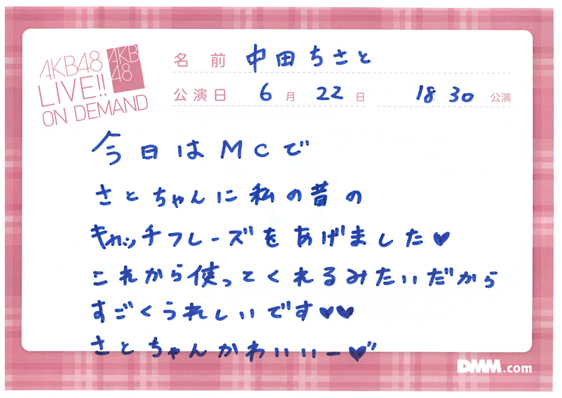 AKB48
LIVE!!
ON DEMAND
AKB
48
名前 中田ちさと
公演日 6月 22日 18 30 公演
今日はMCで
さとちゃんに私の昔の
キャッチフレーズをあげました♥
これから使ってくれるみたいだから
すごくうれしいです♥♥
さとちゃんかわいいー♥"
DMM.com